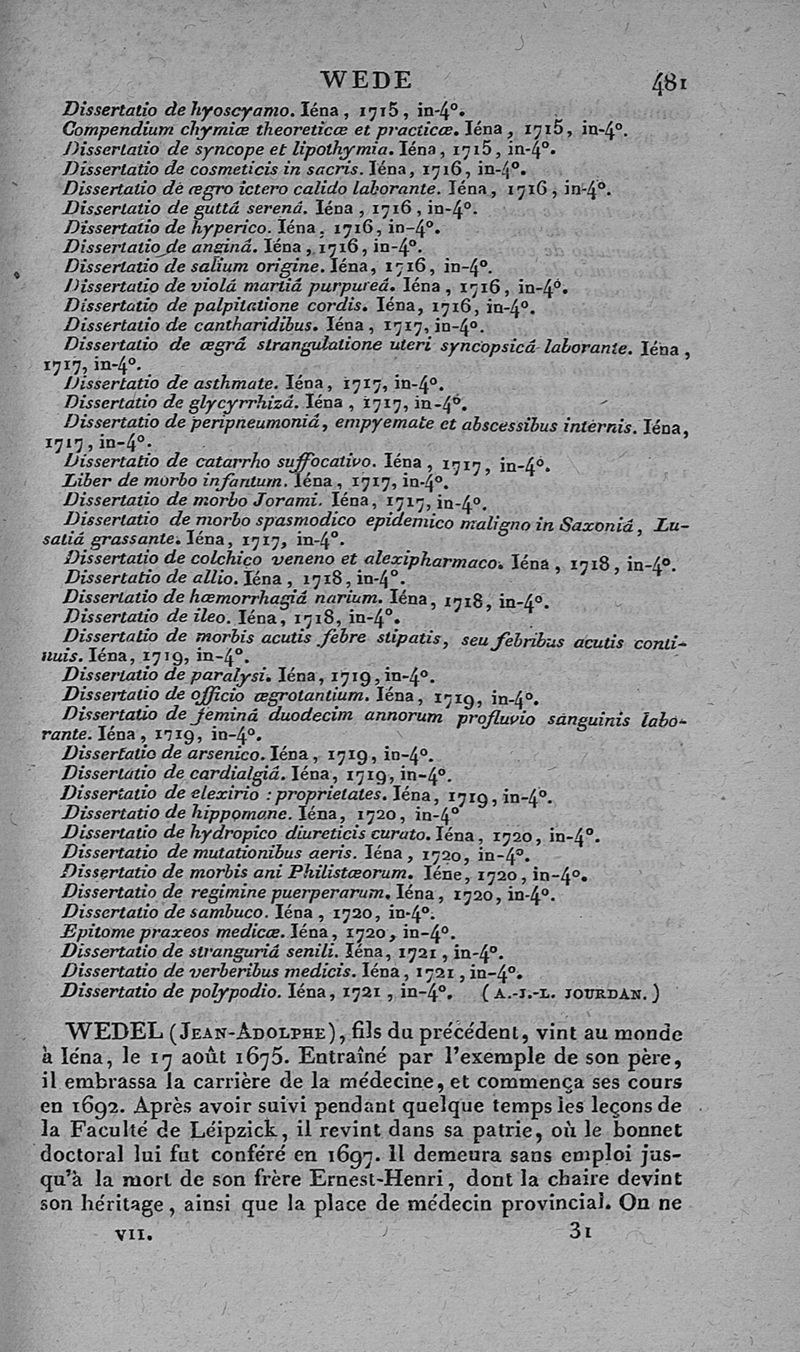 WEDE 481
Dissertatio de hyoscyamo. Iéna, 1715, in-4°.
Compendium chymiæ theoreticæ et practicæ. Iéna, 1715, in-4°.
Dissertatio de syncope et lipothymia. Iéna, 1715, in-4°.
Dissertatio de cosmeticis in sacris. Iéna, 1716, in-4°.
Dissertatio de ægro ictero calido laborante. Iéna, 1716, in-4°.
Dissertatio de guttâ serenâ. Iéna, 1716, in-4°.
Dissertatio de hyperico. Iéna, 1716, in-4°.
Dissertatio de anginâ. Iéna, 1716, in-4°.
Dissertatio de salium origine. Iéna, 1716, in-4°.
Dissertatio de violâ martiâ purpureâ. Iéna, 1716, in-4°.
Dissertatio de palpitatione cordis. Iéna, 1716, in-4°.
Dissertatio de cantharidibus. Iéna, 1717, in-4°.
Dissertatio de ægrâ strangulatione uteri syncopsicâ laborante. Iéna,
1717, in-4°.
Dissertatio de asthmate. Iéna, 1717, in-4°.
Dissertatio de glycyrrhizâ. Iéna, 1717, in-4°.
Dissertatio de peripneumoniâ, empyemate et abscessibus internis. Iéna,
1717, in-4°.
Dissertatio de catarrho suffocativo. Iéna, 1717, in-4°.
Liber de morbo infantum. Iéna, 1717, in-4°.
Dissertatio de morbo Jorami. Iéna, 1717, in-4°.
Dissertatio de morbo spasmodico epidemico maligno in Saxoniâ, Lu-
satiâ grassante. Iéna, 1717, in-4°.
Dissertatio de colchico veneno et alexipharmaco. Iéna, 1718, in-4°.
Dissertatio de allio. Iéna, 1718, in-4°.
Dissertatio de hæmorrhagiâ narium. Iéna, 1718, in-4°.
Dissertatio de ileo. Iéna, 1718, in-4°.
Dissertatio de morbis acutis febre stipatis, seu febribus acutis conti-
nuis. Iéna, 1719, in-4°.
Dissertatio de paralysi. Iéna, 1719, in-4°.
Dissertatio de officio ægrotantium. Iéna, 1719, in-4°.
Dissertatio de feminâ duodecim annorum profluvio sanguinis labo-
rante. Iéna, 1719, in-4°.
Dissertatio de arsenico. Iéna, 1719, in-4°.
Dissertatio de cardialgiâ. Iéna, 1719, in-4°.
Dissertatio de elexirio : proprietates. Iéna, 1719, in-4°.
Dissertatio de hippomane. Iéna, 1720, in-4°
Dissertatio de hydropico diureticis curato. Iéna, 1720, in-4°.
Dissertatio de mutationibus aeris. Iéna, 1720, in-4°.
Dissertatio de morbis ani Philistæorum. Iéne, 1720, in-4°.
Dissertatio de regimine puerperarum. Iéna, 1720, in-4°.
Dissertatio de sambuco. Iéna, 1720, in-4°.
Epitome praxeos medicæ. Iéna, 1720, in-4°.
Dissertatio de stranguriâ senili. Iéna, 1721, in-4°.
Dissertatio de verberibus medicis. Iéna, 1721, in-4°.
Dissertatio de polypodio. Iéna, 1721, in-4°. (A.-J.-L. JOURDAN.)
WEDEL (JEAN-ADOLPHE), fils du précédent, vint au monde
à Iéna, le 17 août 1675. Entraîné par l'exemple de son père,
il embrassa la carrière de la médecine, et commença ses cours
en 1692. Après avoir suivi pendant quelque temps les leçons de
la Faculté de Léipzick, il revint dans sa patrie, où le bonnet
doctoral lui fut conféré en 1697. Il demeura sans emploi jus-
qu'à la mort de son frère Ernest-Henri, dont la chaire devint
son héritage, ainsi que la place de médecin provincial. On ne
VII. 31